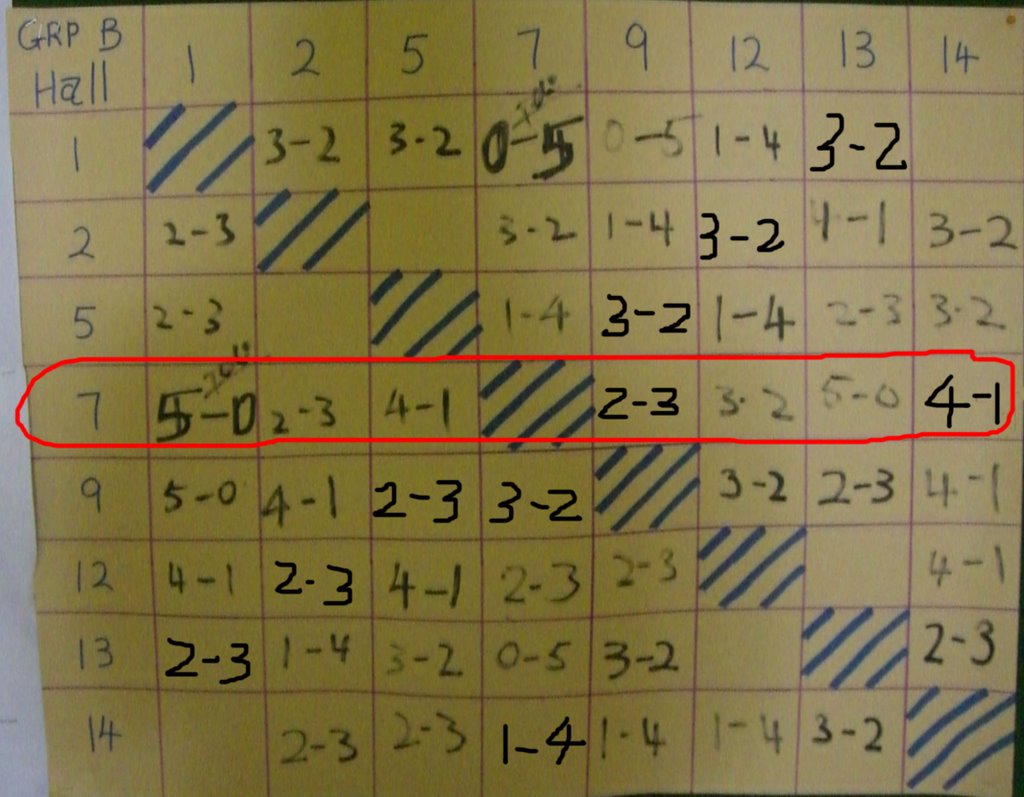 GRP B
Hall 1 2 5 7 9 12 13 14
1 3-2 3-2 0-5 0-5 1-4 3-2
2 2-3 3-2 1-4 3-2 4-1 3-2
5 2-3 1-4 3-2 1-4 2-3 3-2
7 5-0 2-3 4-1 2-3 3-2 5-0 4-1
9 5-0 4-1 2-3 3-2 3-2 2-3 4-1
12 4-1 2-3 4-1 2-3 2-3 4-1
13 2-3 1-4 3-2 0-5 3-2 2-3
14 2-3 2-3 1-4 1-4 1-4 3-2